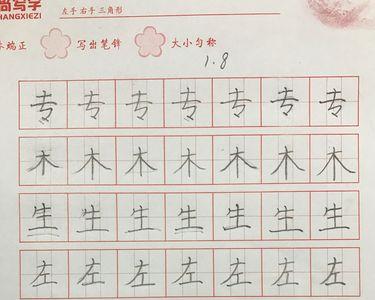 尚写字
左手右手三角形
HANGXIEZI
本端正 写出笔锋 大小匀称
1.8
专 专 专 专 专 专 专
木 木 木 木 木 木 木
生 生 生 生 生 生 生
左 左 左 左 左 左 左